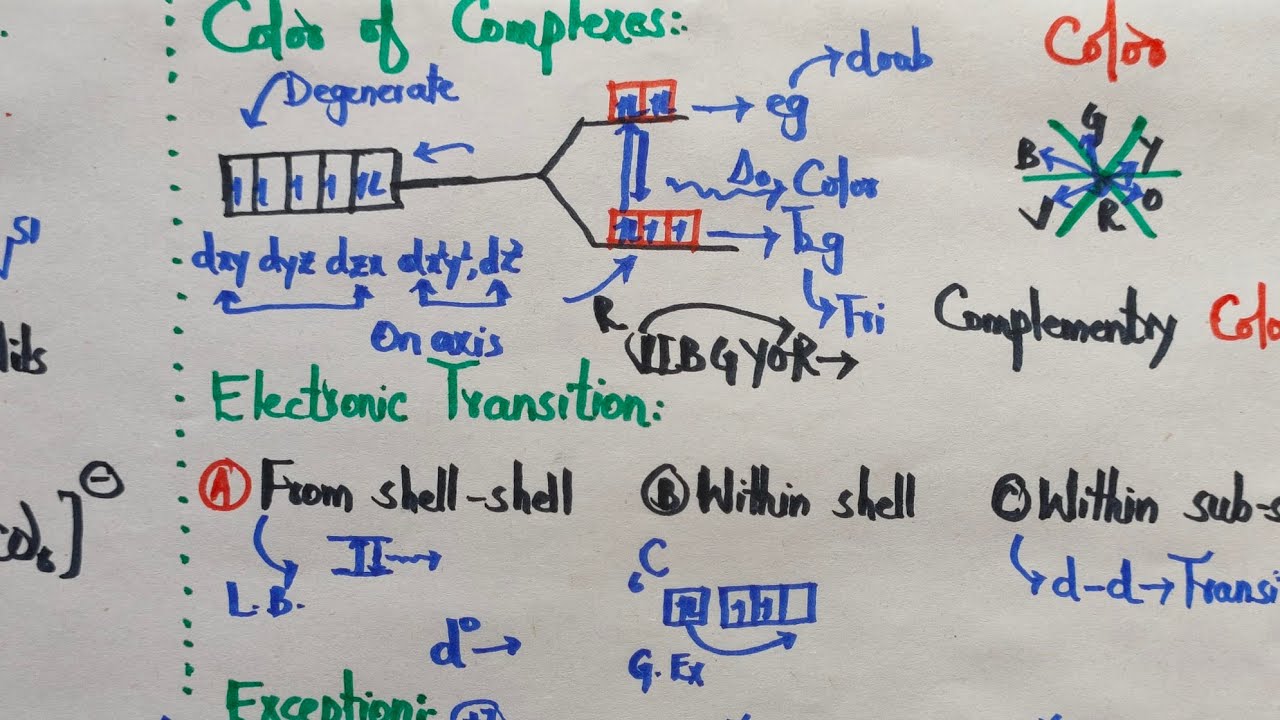 Color of Complexes::
Color
Degenerate
eg → doub
Δo Color
T2g
Tri
dxy dyz dzx dx²y², dz²
On axis
R
VIBGYOR →
G
B Y
V R O
Complementry Colo
Electronic Transition:
(A) From shell-shell
L.B.
II →
d⁰ →
(B) Within shell
₆C
G. Ex
(C) Within sub-s
d-d → Transi
Exception: